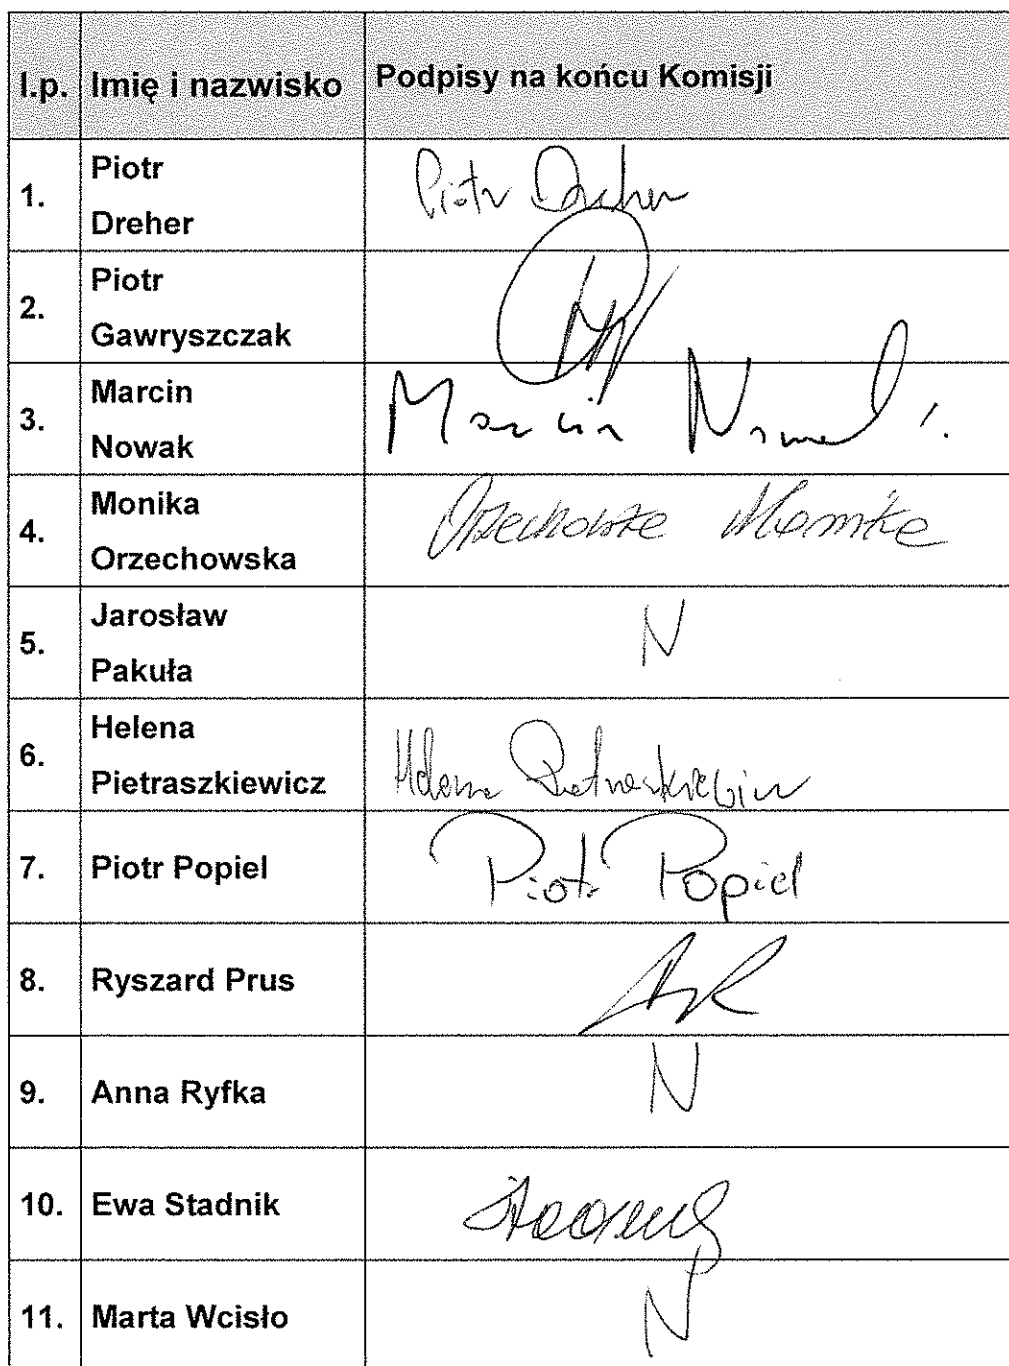 l.p. Imię i nazwisko Podpisy na końcu Komisji
1. Piotr Piotr Dreher
Dreher
2. Piotr
Gawryszczak
3. Marcin Marcin Nowak
Nowak
4. Monika Orzechowska Monika
Orzechowska
5. Jarosław N
Pakuła
6. Helena Helena Pietraszkiewicz
Pietraszkiewicz
7. Piotr Popiel Piotr Popiel
8. Ryszard Prus
9. Anna Ryfka N
10. Ewa Stadnik
11. Marta Wcisło N